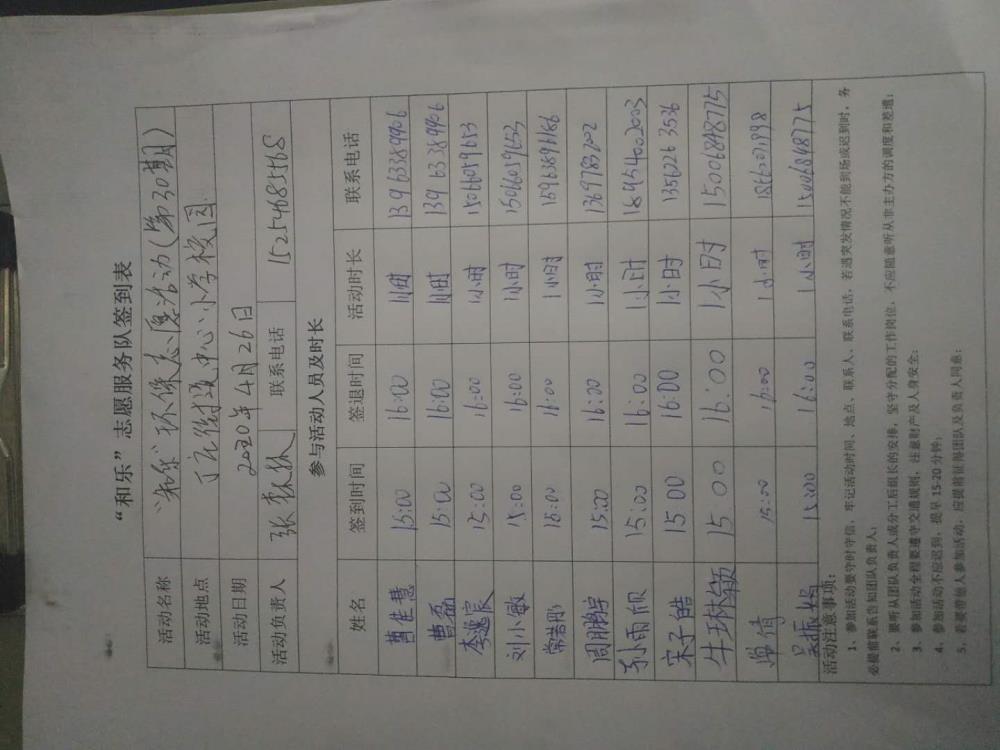 “和乐”志愿服务队签到表
活动名称 “和乐”环保志愿活动（第30期）
活动地点 丁庄街道中心小学校园
活动日期 2020年4月26日
活动负责人 张森林 联系电话 15254685568
参与活动人员及时长
姓名 签到时间 签退时间 活动时长 联系电话
曹生慧 15:00 16:00 1小时 13963389906
曹磊 15:00 16:00 1小时 13963389906
李遂宸 15:00 16:00 1小时 15066059653
刘小敏 15:00 16:00 1小时 15066059653
常岩彤 15:00 16:00 1小时 15963896186
周鹏宇 15:00 16:00 1小时
孙雨欣 15:00 16:00 1小时 18954002003
宋子皓 15 00 16:00 1小时 1356326 3536
牛琳颖 15 00 16:00 1小时 15006848775
单倩 15:00 16:00 1小时
吴振娟 15:00 16:00 1小时 15006848775
活动注意事项：
1、参加活动要守时守信，牢记活动时间、地点、联系人、联系电话，若遇突发情况不能到场或迟到时，务
必提前联系告知团队负责人；
2、要听从团队负责人或分工后组长的安排，坚守分配的工作岗位，不应随意听从非主办方的调度和差遣；
3、参加活动全程要遵守交通规则，注意财产及人身安全；
4、参加活动不应迟到，提早15-20分钟；
5、若要带他人参加活动，应提前征得团队及负责人同意；